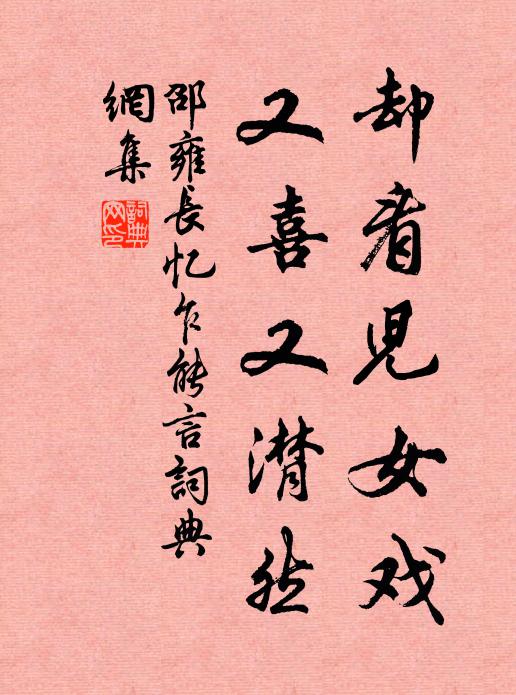 却看児女戏
又喜又潸然
邵雍长忆乍能言詞典
網集
詞典
网印